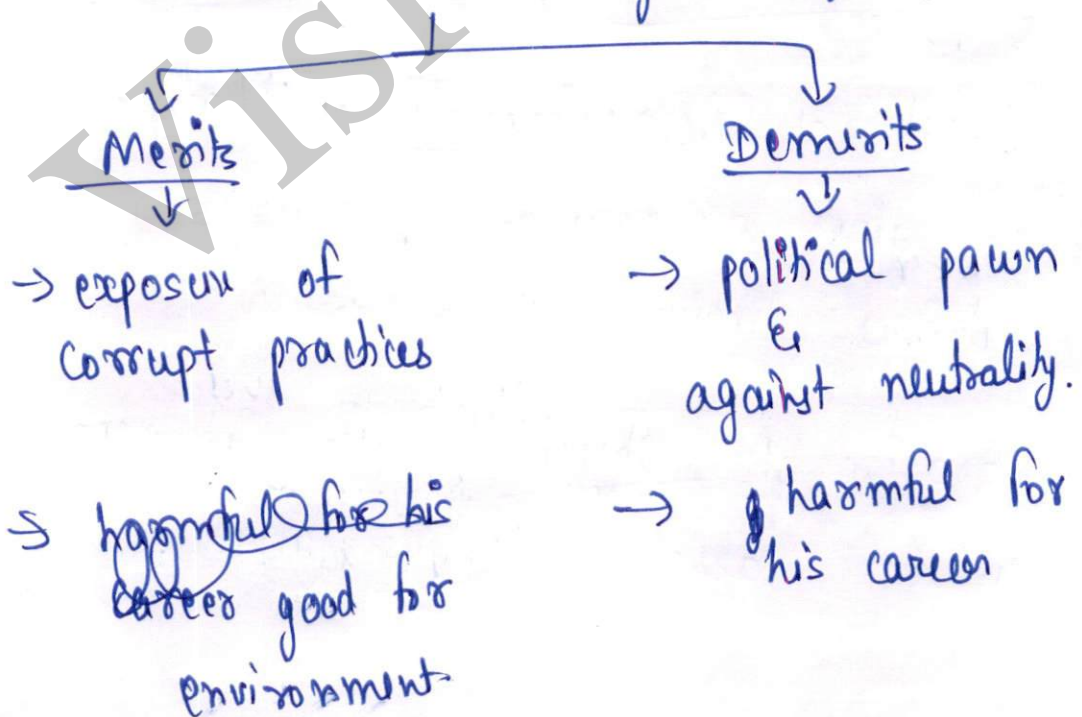 Vis
Merits
→ exposure of
corrupt practices
→ good for
environment
Demerits
→ political pawn
&
against neutrality.
→ harmful for
his career